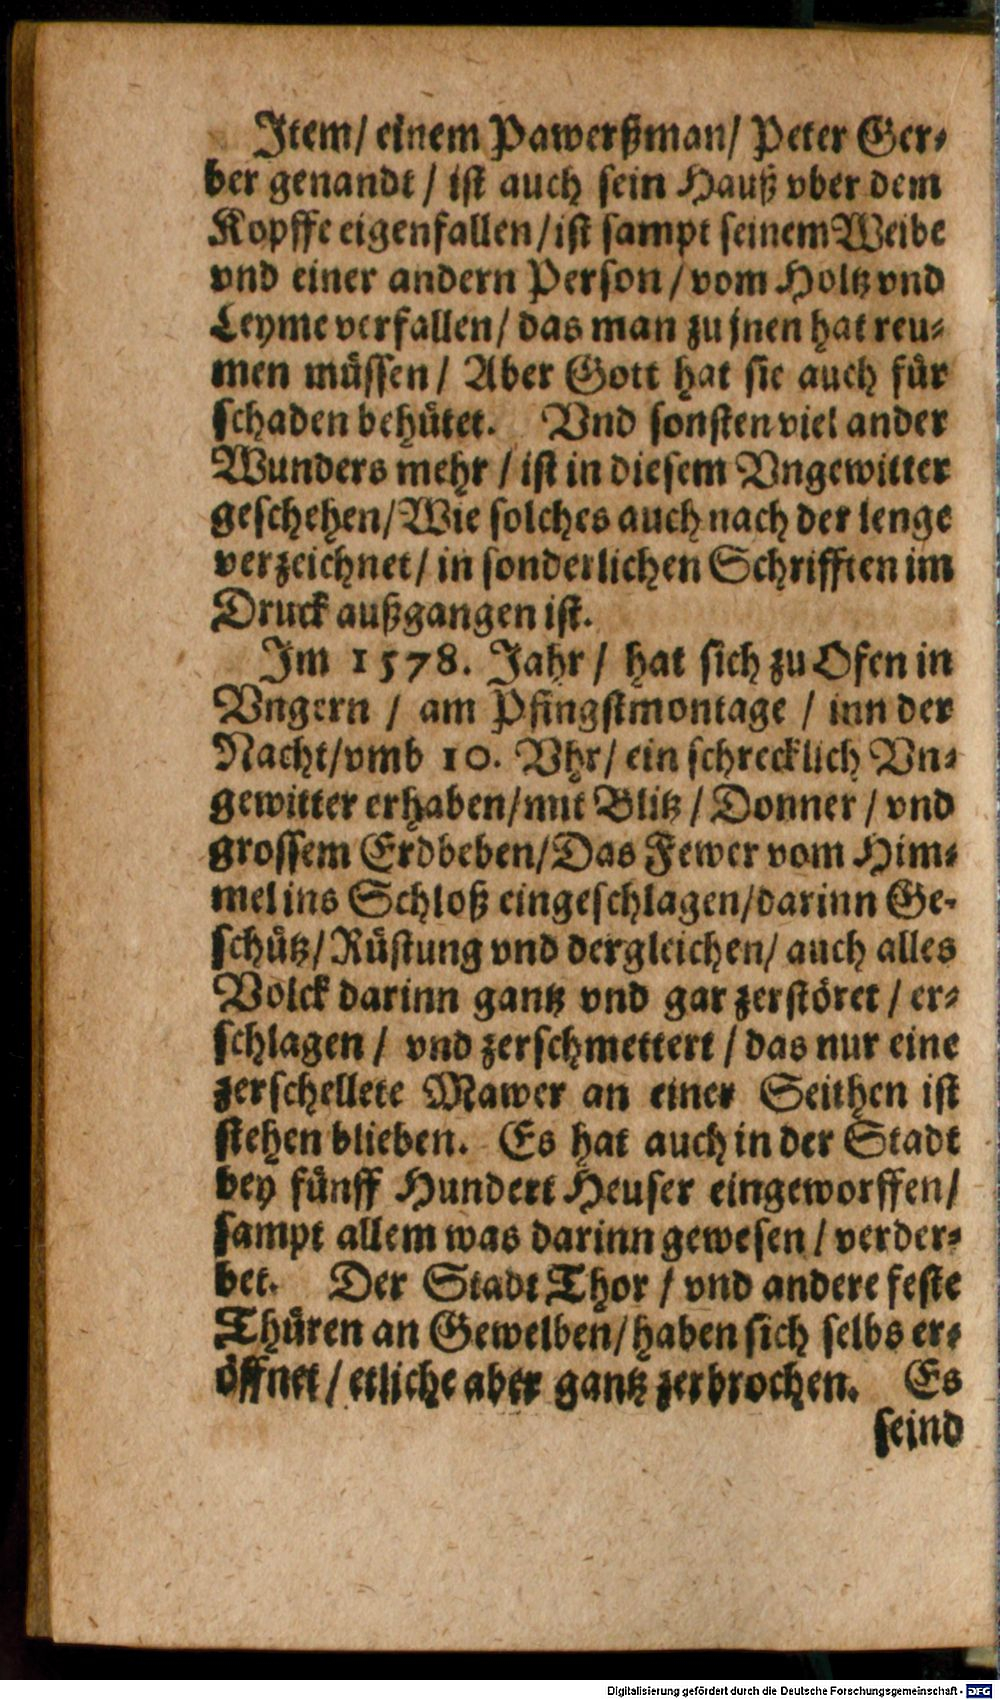 Item/ einem Pawerßman/ Peter Ger-
ber genandt / ist auch sein Hauß vber dem
Kopffe eigenfallen/ist sampt seinem Weibe
vnd einer andern Person / vom Holtz vnd
Leyme verfallen/ das man zu jnen hat reu-
men müssen / Aber Gott hat sie auch für
schaden behütet. Vnd sonsten viel ander
Wunders mehr / ist in diesem Vngewitter
geschehen/Wie solches auch nach der lenge
verzeichnet/ in sonderlichen Schrifften im
Druck außgangen ist.
Im 1578. Jahr / hat sich zu Ofen in
Vngern / am Pfingstmontage / inn der
Nacht/vmb 10. Vhr/ ein schrecklich Vn-
gewitter erhaben/mit Blitz / Donner / vnd
grossem Erdbeben/Das Fewer vom Him-
mel ins Schloß eingeschlagen/darinn Ge-
schütz/Rüstung vnd dergleichen/ auch alles
Volck darinn gantz vnd gar zerstöret / er-
schlagen / vnd zerschmettert / das nur eine
zerschellete Mawer an einer Seithen ist
stehen blieben. Es hat auch in der Stadt
bey fünff Hundert Heuser eingeworffen/
sampt allem was darinn gewesen / verder-
bet. Der Stadt Thor / vnd andere feste
Thüren an Gewelben/haben sich selbs er-
öffnet / etliche aber gantz zerbrochen. Es
seind
Digitalisierung gefördert durch die Deutsche Forschungsgemeinschaft - DFG